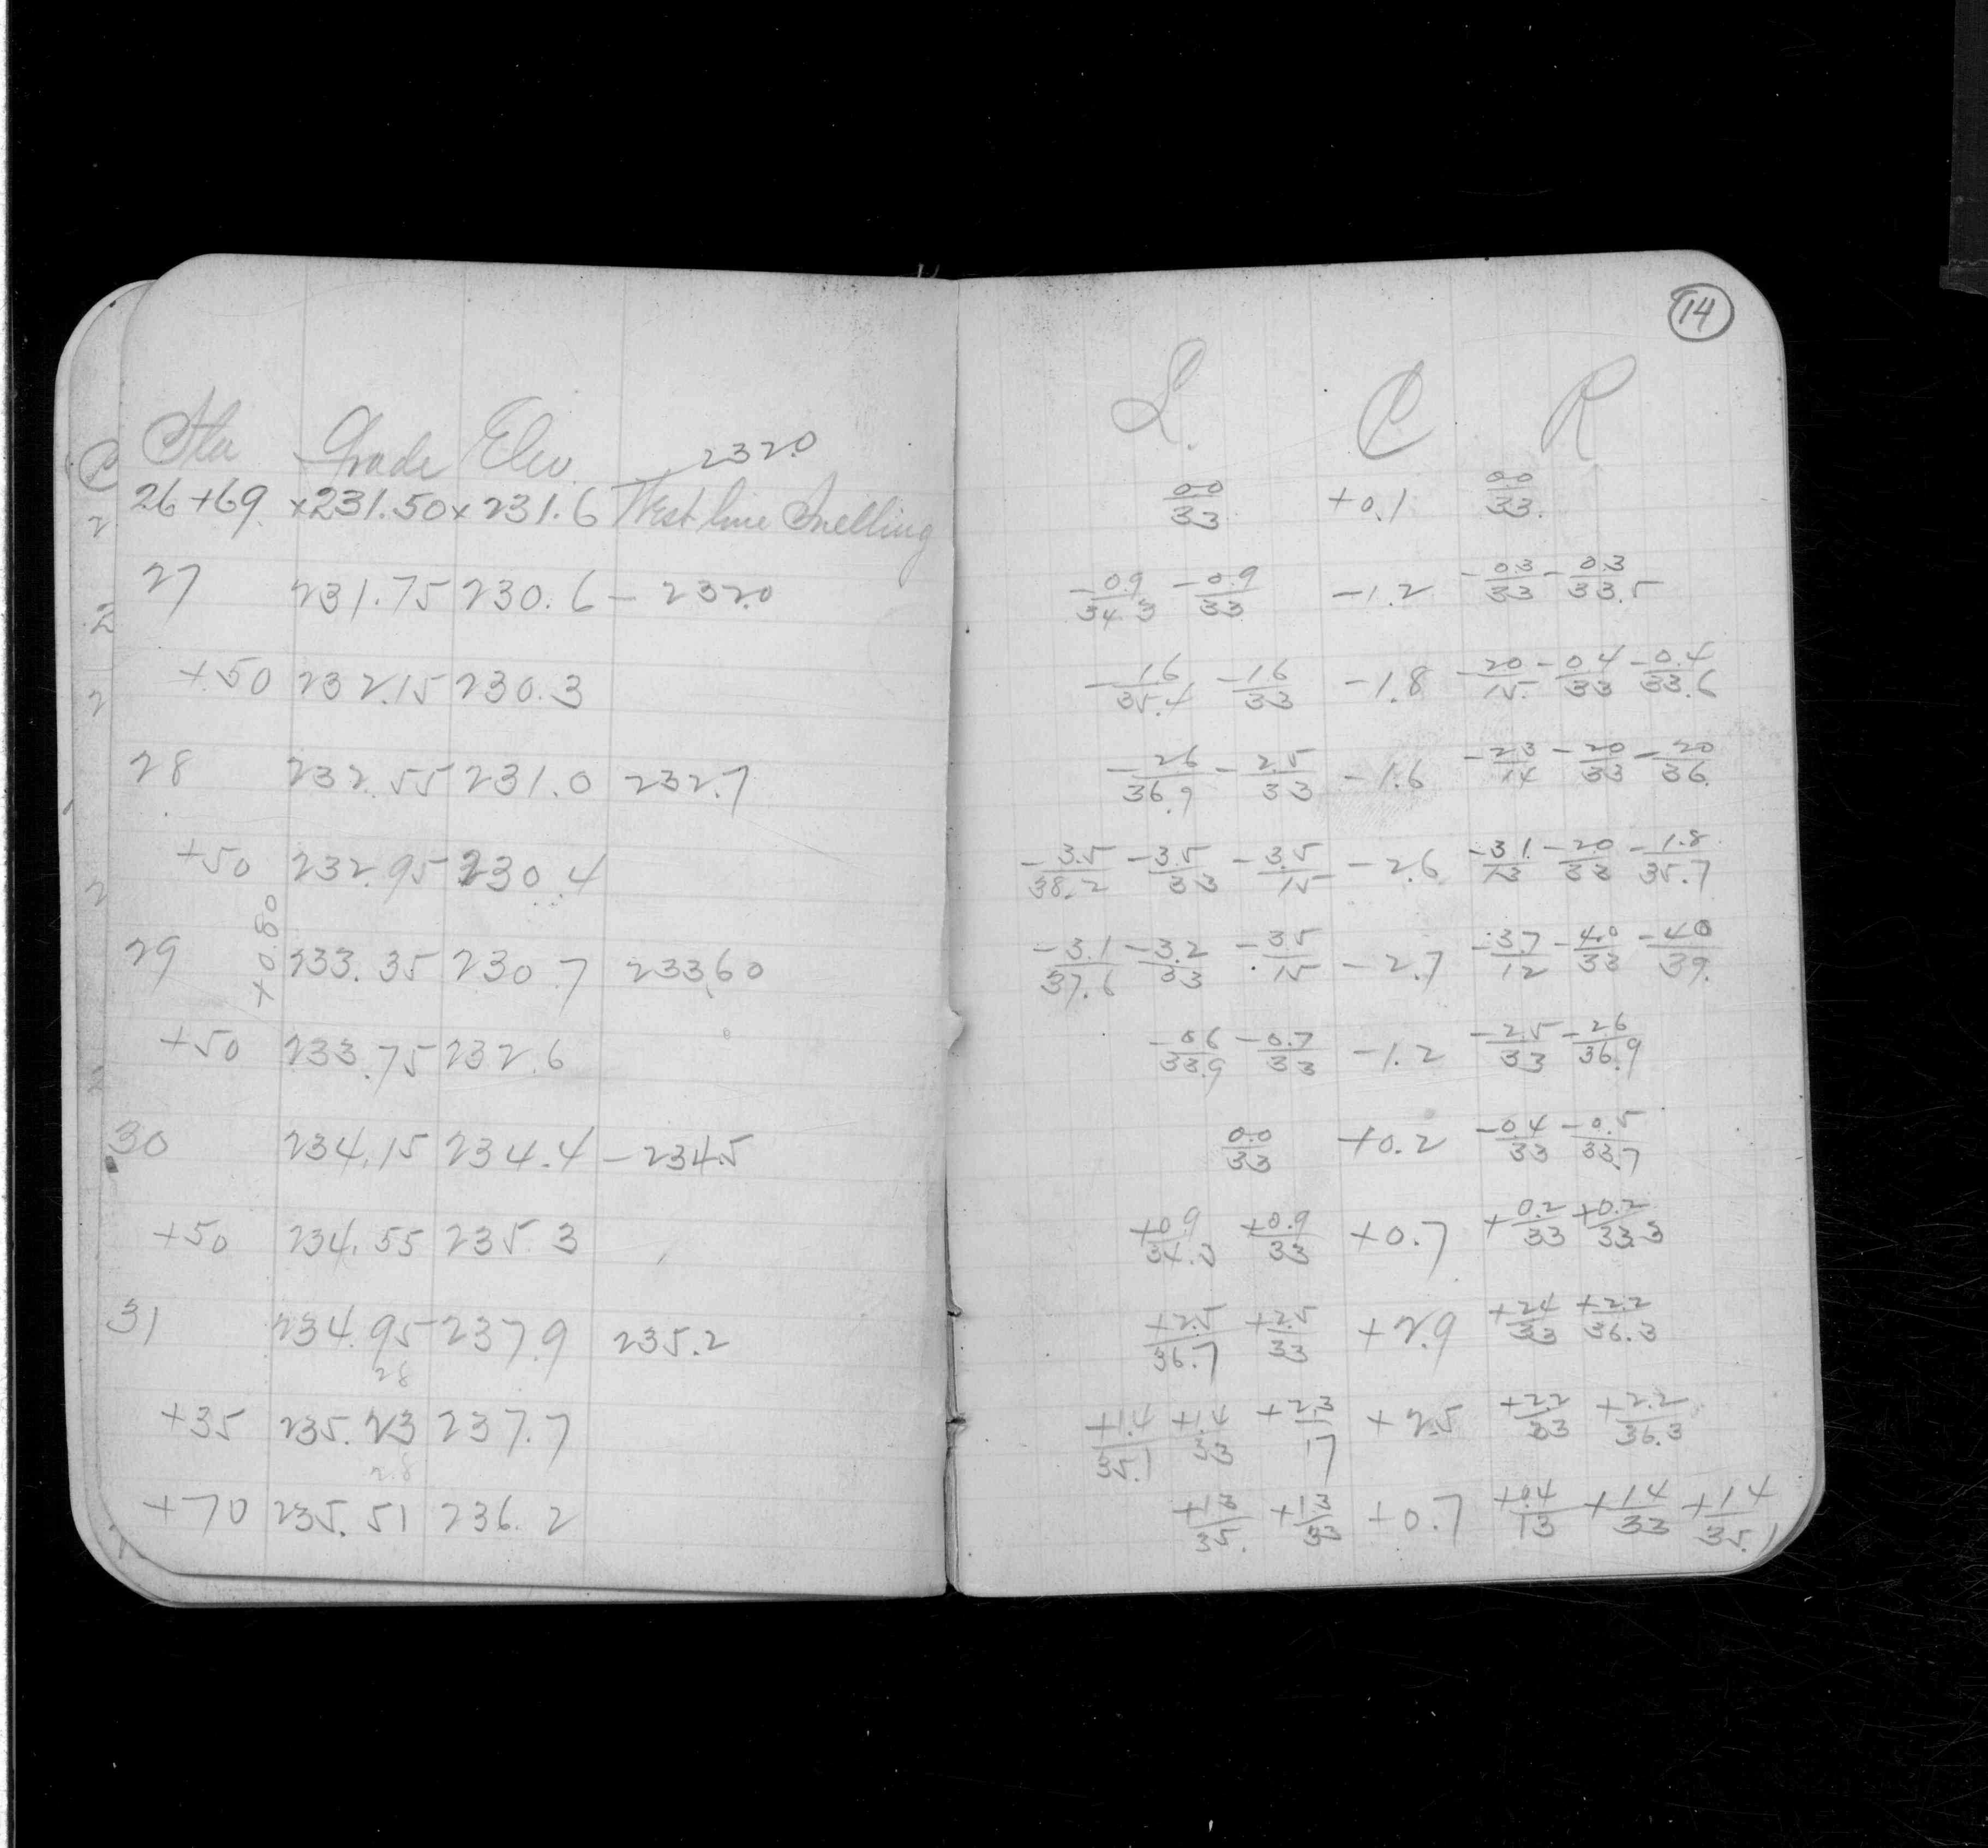 14
Sta Grade Elev. 232.0
26+69 x231.50 x231.6 West line Snelling
27 231.75 230.6 - 232.0
+50 232.15 230.3
28 232.55 231.0 232.7
+50 232.95 230.4
29 +0.80 233.35 230.7 233.60
+50 233.75 232.6
30 234.15 234.4 - 234.5
+50 234.55 235.3
31 234.95 237.9 235.2
28
+35 235.23 237.7
28
+70 235.51 236.2
L. C R
0.0/33 +0.1 0.0/33.
-0.9/34.3 -0.9/33 -1.2 -0.3/33 -0.3/33.5
-1.6/35.4 -1.6/33 -1.8 -2.0/15 -0.4/33 -0.4/33.6
-2.6/36.9 -2.5/33 -1.6 -2.3/14 -2.0/33 -2.0/36.
-3.5/38.2 -3.5/33 -3.5/15 -2.6 -3.1/13 -2.0/33 -1.8/35.7
-3.1/37.6 -3.2/33 -3.5/15 -2.7 -3.7/12 -4.0/33 -4.0/39.
-0.6/33.9 -0.7/33 -1.2 -2.5/33 -2.6/36.9
0.0/33 +0.2 -0.4/33 -0.5/33.7
+0.9/34.3 +0.9/33 +0.7 +0.2/33 +0.2/33.3
+2.5/36.7 +2.5/33 +2.9 +2.4/33 +2.2/36.3
+1.4/35.1 +1.4/33 +2.3/17 +2.5 +2.2/33 +2.2/36.3
+1.3/35. +1.3/33 +0.7 +0.4/13 +1.4/33 +1.4/35.1